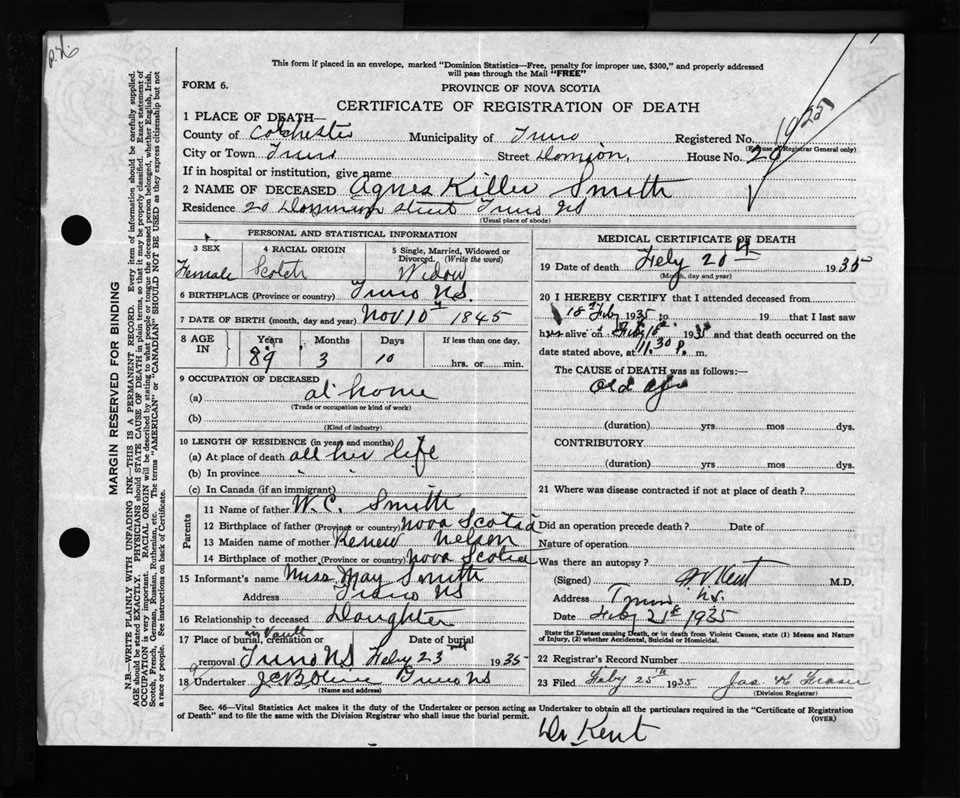 This form if placed in an envelope, marked "Dominion Statistics—Free, penalty for improper use, $300," and properly addressed
will pass through the Mail "FREE"
FORM 6.
PROVINCE OF NOVA SCOTIA
CERTIFICATE OF REGISTRATION OF DEATH
MARGIN RESERVED FOR BINDING
N.B.—WRITE PLAINLY WITH UNFADING INK—THIS IS A PERMANENT RECORD. Every item of information should be carefully supplied.
AGE should be stated EXACTLY. PHYSICIANS should STATE CAUSE OF DEATH in plain terms, so that it may be properly classified. Exact statement of
OCCUPATION is very important. RACIAL ORIGIN will be described by stating to what people or tongue the deceased person belonged, whether English, Irish,
Scotch, French, German, Russian, Ruthenian, etc. The terms "AMERICAN" or "CANADIAN" SHOULD NOT BE USED as they express citizenship but not
a race or people. See instructions on back of Certificate.
1 PLACE OF DEATH—
County of Colchester Municipality of Truro Registered No. 1925
(For use of Registrar General only)
City or Town Truro Street House No. 20
If in hospital or institution, give name
2 NAME OF DECEASED Agnes Smith
Residence 20 Dominion Street Truro NS
(Usual place of abode)
PERSONAL AND STATISTICAL INFORMATION
3 SEX 4 RACIAL ORIGIN 5 Single, Married, Widowed or Divorced. (Write the word)
Female Scotch Widow
6 BIRTHPLACE (Province or country) Truro NS.
7 DATE OF BIRTH (month, day and year) Nov 10 1845
8 AGE IN Years Months Days If less than one day,
89 3 10 hrs. or min.
9 OCCUPATION OF DECEASED
(a) at home
(Trade or occupation or kind of work)
(b)
(Kind of industry)
10 LENGTH OF RESIDENCE (in years and months)
(a) At place of death all her life
(b) In province " "
(c) In Canada (if an immigrant)
Parents
11 Name of father W. C. Smith
12 Birthplace of father (Province or country) Nova Scotia
13 Maiden name of mother Nelson
14 Birthplace of mother (Province or country) Nova Scotia
15 Informant's name Miss May Smith
Address Truro NS
16 Relationship to deceased Daughter
17 Place of burial, cremation or removal in Vault Truro NS Date of burial Feby 23 1935
18 Undertaker Truro NS
(Name and address)
MEDICAL CERTIFICATE OF DEATH
19 Date of death Feby 20 1935
(Month, day and year)
20 I HEREBY CERTIFY that I attended deceased from
18 Feby 1935 to 19 that I last saw
alive on Feby 1935 and that death occurred on the
date stated above, at 11.30 p. m.
The CAUSE of DEATH was as follows:—
Old age
(duration) yrs mos dys.
CONTRIBUTORY
(duration) yrs mos dys.
21 Where was disease contracted if not at place of death?
Did an operation precede death? Date of
Nature of operation
Was there an autopsy?
(Signed) Kent M.D.
Address Truro N.S.
Date Feby 21st 1935
State the Disease causing Death, or in death from Violent Causes, state (1) Means and Nature
of Injury, (2) whether Accidental, Suicidal or Homicidal.
22 Registrar's Record Number
23 Filed Feby 25th 1935 Jas. Fraser
(Division Registrar)
Sec. 46—Vital Statistics Act makes it the duty of the Undertaker or person acting as Undertaker to obtain all the particulars required in the "Certificate of Registration
of Death" and to file the same with the Division Registrar who shall issue the burial permit. (OVER)
Dr. Kent